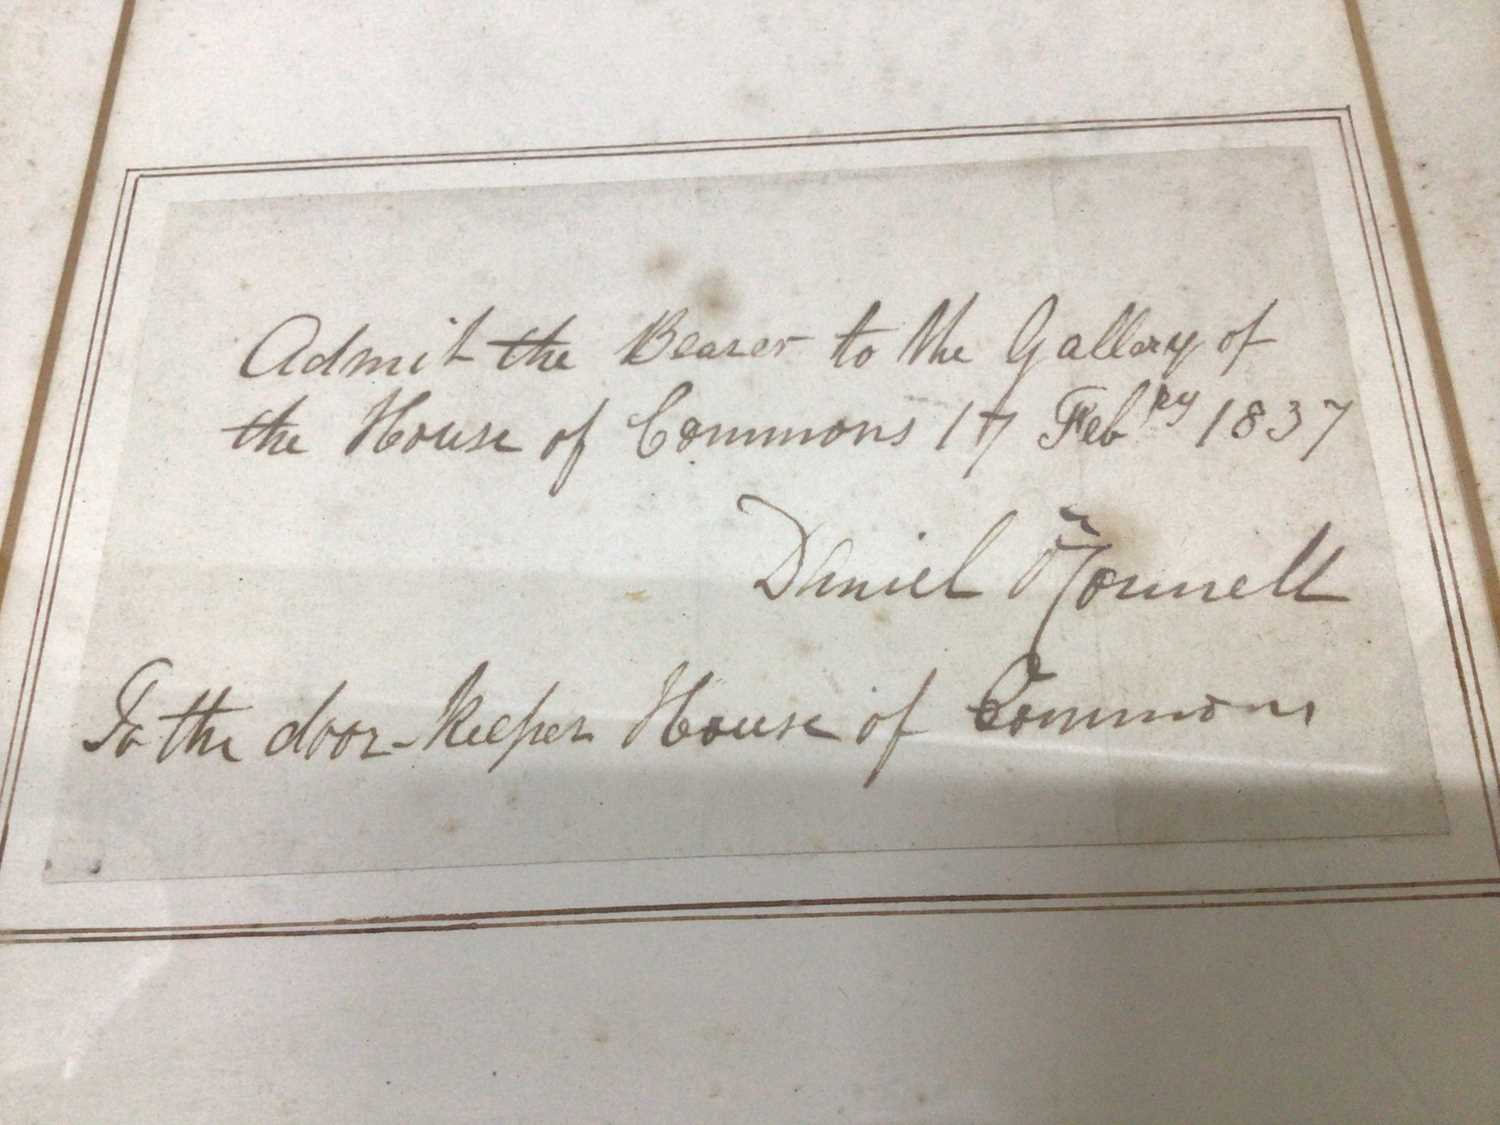 Admit the Bearer to the Gallery of
the House of Commons 17 Feb^ry 1837
Daniel O'Connell
To the door-keeper House of Commons